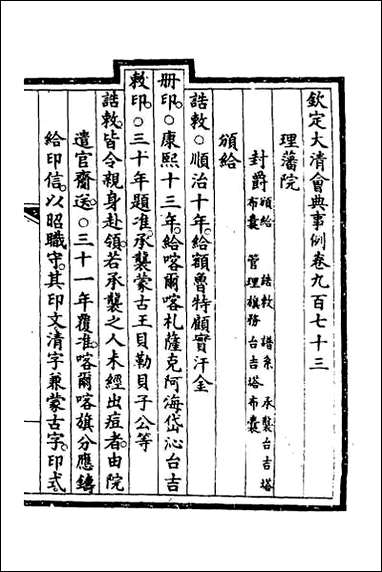 欽定大清會典事例卷九百七十三
理藩院
封爵 頒給 誥敕 譜系 承襲台吉塔
布囊 管理旗務台吉塔布囊
頒給
誥敕○順治十年給額魯特顧實汗金
册印○康熙十三年給喀爾喀札薩克阿海岱沁台吉
敕印○三十年題准承襲蒙古王貝勒貝子公等
誥敕皆令親身赴領若承襲之人未經出痘者由院
遣官齎送○三十一年覆准喀爾喀旗分應鑄
給印信以昭職守其印文清字兼蒙古字印式